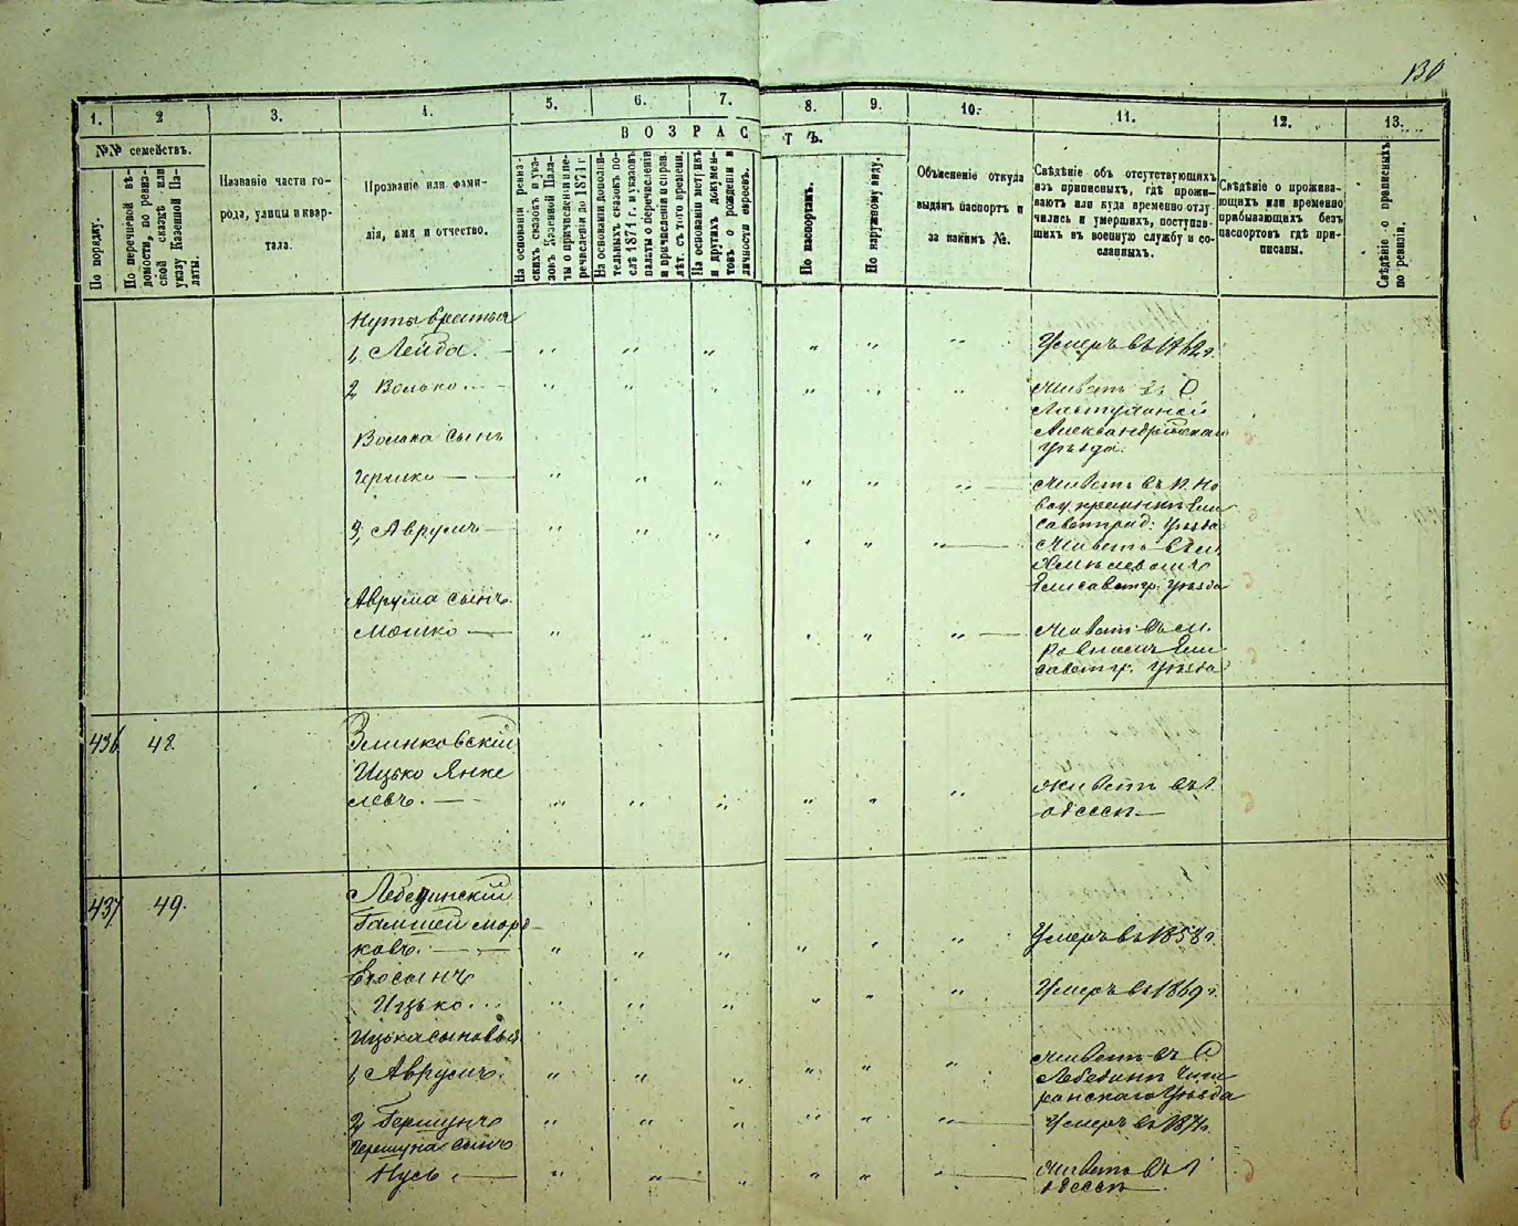 130
1. 2 3. 4. 5. 6. 7. 8. 9. 10. 11. 12. 13.
ВОЗРАСТЪ.
№№ семействъ.
По порядку.
По перечневой вѣ-
домости, по ревиз-
ской сказкѣ или
указу Казенной Па-
латы.
Названіе части го-
рода, улицы и квар-
тала.
Прозваніе или фами-
лія, имя и отчество.
На основаніи ревиз-
скихъ сказокъ и ука-
зовъ Казенной Пала-
ты о причисленіи и пе-
речисленіи до 1874 г
На основаніи дополни-
тельныхъ сказокъ по-
слѣ 1874 г. и указовъ
палаты о перечисленіи
и причисленіи и справ.
лѣт. съ того времени.
На основаніи метрикъ
и другихъ докумен-
товъ о рожденіи и
личности евреевъ.
По паспортамъ.
По наружному виду.
Объясненіе откуда
выданъ паспортъ и
за какимъ №.
Свѣдѣніе объ отсутствующихъ
изъ приписныхъ, гдѣ прожи-
ваютъ или куда временно отлу-
чились и умершихъ, поступив-
шихъ въ военную службу и со-
сланныхъ.
Свѣдѣніе о прожива-
ющихъ или временно
прибывающихъ безъ
паспортовъ гдѣ при-
писаны.
Свѣдѣніе о прописныхъ
по ревизіи.
Нуты братья
1, Лейба. Умеръ въ 1862 г.
2, Волько Живетъ въ С
Александрійскаго
Уѣзда.
Волька сынъ
Гершко Живетъ въ п. Но
вой прагѣ Ели
саветград: Уѣзда
3, Аврумъ Живетъ въ м.
Елисаветгр. Уѣзда
Аврума сынъ
Мошко Живетъ въ м.
Ровномъ Ели
саветгр. Уѣзда
436 48.
Злинковскій
Ицько Янке
левъ. Живетъ въ г.
Одессѣ
437 49.
Лебединскій
Гамшей Морд-
ковъ. Умеръ въ 1858 г.
Его сынъ
Ицько Умеръ въ 1869 г.
Ицька сыновья
1, Аврумъ. Живетъ въ С
Лебединѣ Чиги
ринскаго Уѣзда
2, Гершунъ Умеръ въ 1874.
Гершуна сынъ
Нусь Живетъ въ г
Одессѣ